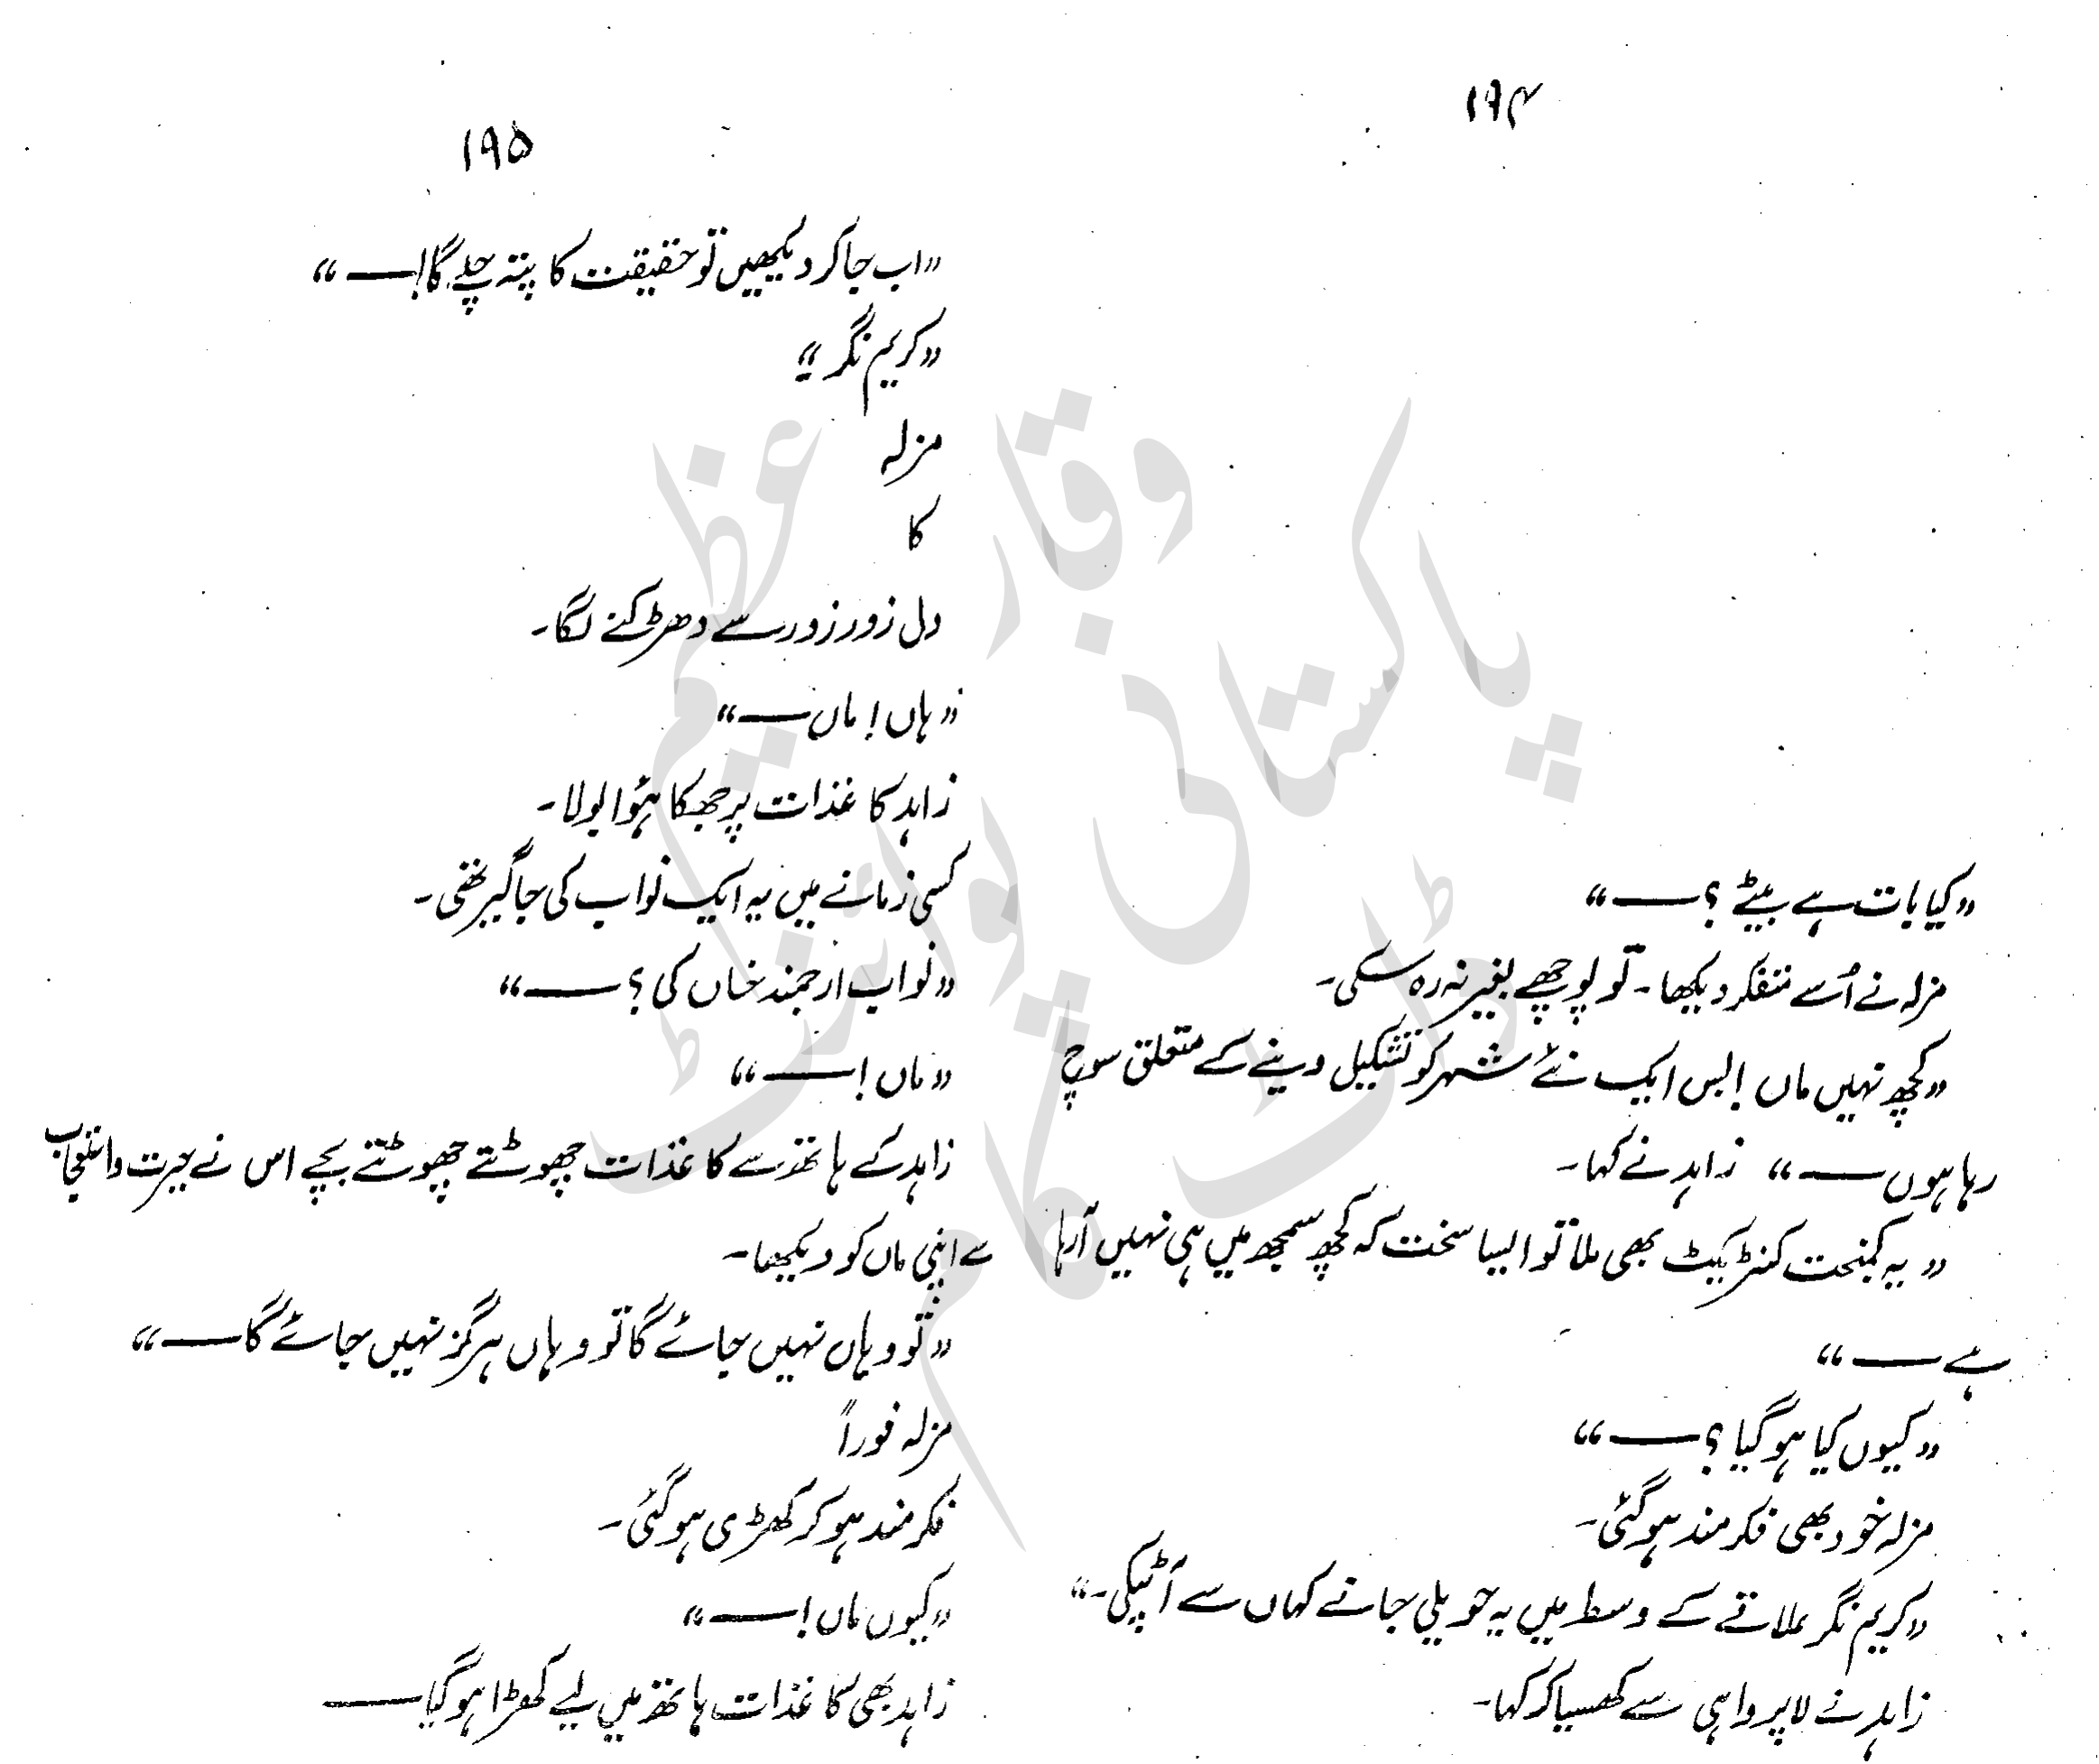 ۱۹۴
"کیا بات ہے بیٹے؟ـــــ"
مزلہ نے اُسے متفکر دیکھا۔ تو پوچھے بغیر نہ رہ سکی۔
"کچھ نہیں ماں! بس ایک نئے شہر کو تشکیل دینے کے متعلق سوچ
رہا ہوں ـــــ" زاہد نے کہا۔
"یہ کمبخت کنٹریکٹ بھی ملا تو ایسا سخت کہ کچھ سمجھ میں ہی نہیں آرہا
ہے ـــــ"
"کیوں کیا ہو گیا؟ـــــ"
مزلہ خود بھی فکر مند ہو گئی۔
"کریم نگر علاقے کے وسط میں یہ حویلی جانے کہاں سے آٹپکی۔"
زاہد نے لاپرواہی سے کھسیا کر کہا۔
۱۹۵
"اب جا کر دیکھیں تو حقیقت کا پتہ چلے گا!ـــــ"
"کریم نگر"
مزلہ
کا
دل زور زور سے دھڑکنے لگا۔
"ہاں! ماں ـــــ"
زاہد کاغذات پر جھکا ہؤا بولا۔
کسی زمانے میں یہ ایک نواب کی جاگیر تھی۔
"نواب ارجمند خاں کی؟ـــــ"
"ماں!ـــــ"
زاہد کے ہاتھ سے کاغذات چھوٹتے چھوٹتے بچے اس نے حیرت و استعجاب
سے اپنی ماں کو دیکھا۔
"تو وہاں نہیں جائے گا تو وہاں ہرگز نہیں جائے گا ـــــ"
مزلہ فوراً
فکر مند ہو کر کھڑی ہو گئی۔
"کیوں ماں!ـــــ"
زاہد بھی کاغذات ہاتھ میں لیے کھڑا ہو گیا ـــــ
وقار عظیم
پاکستانی پوائنٹ
ڈاٹ کام